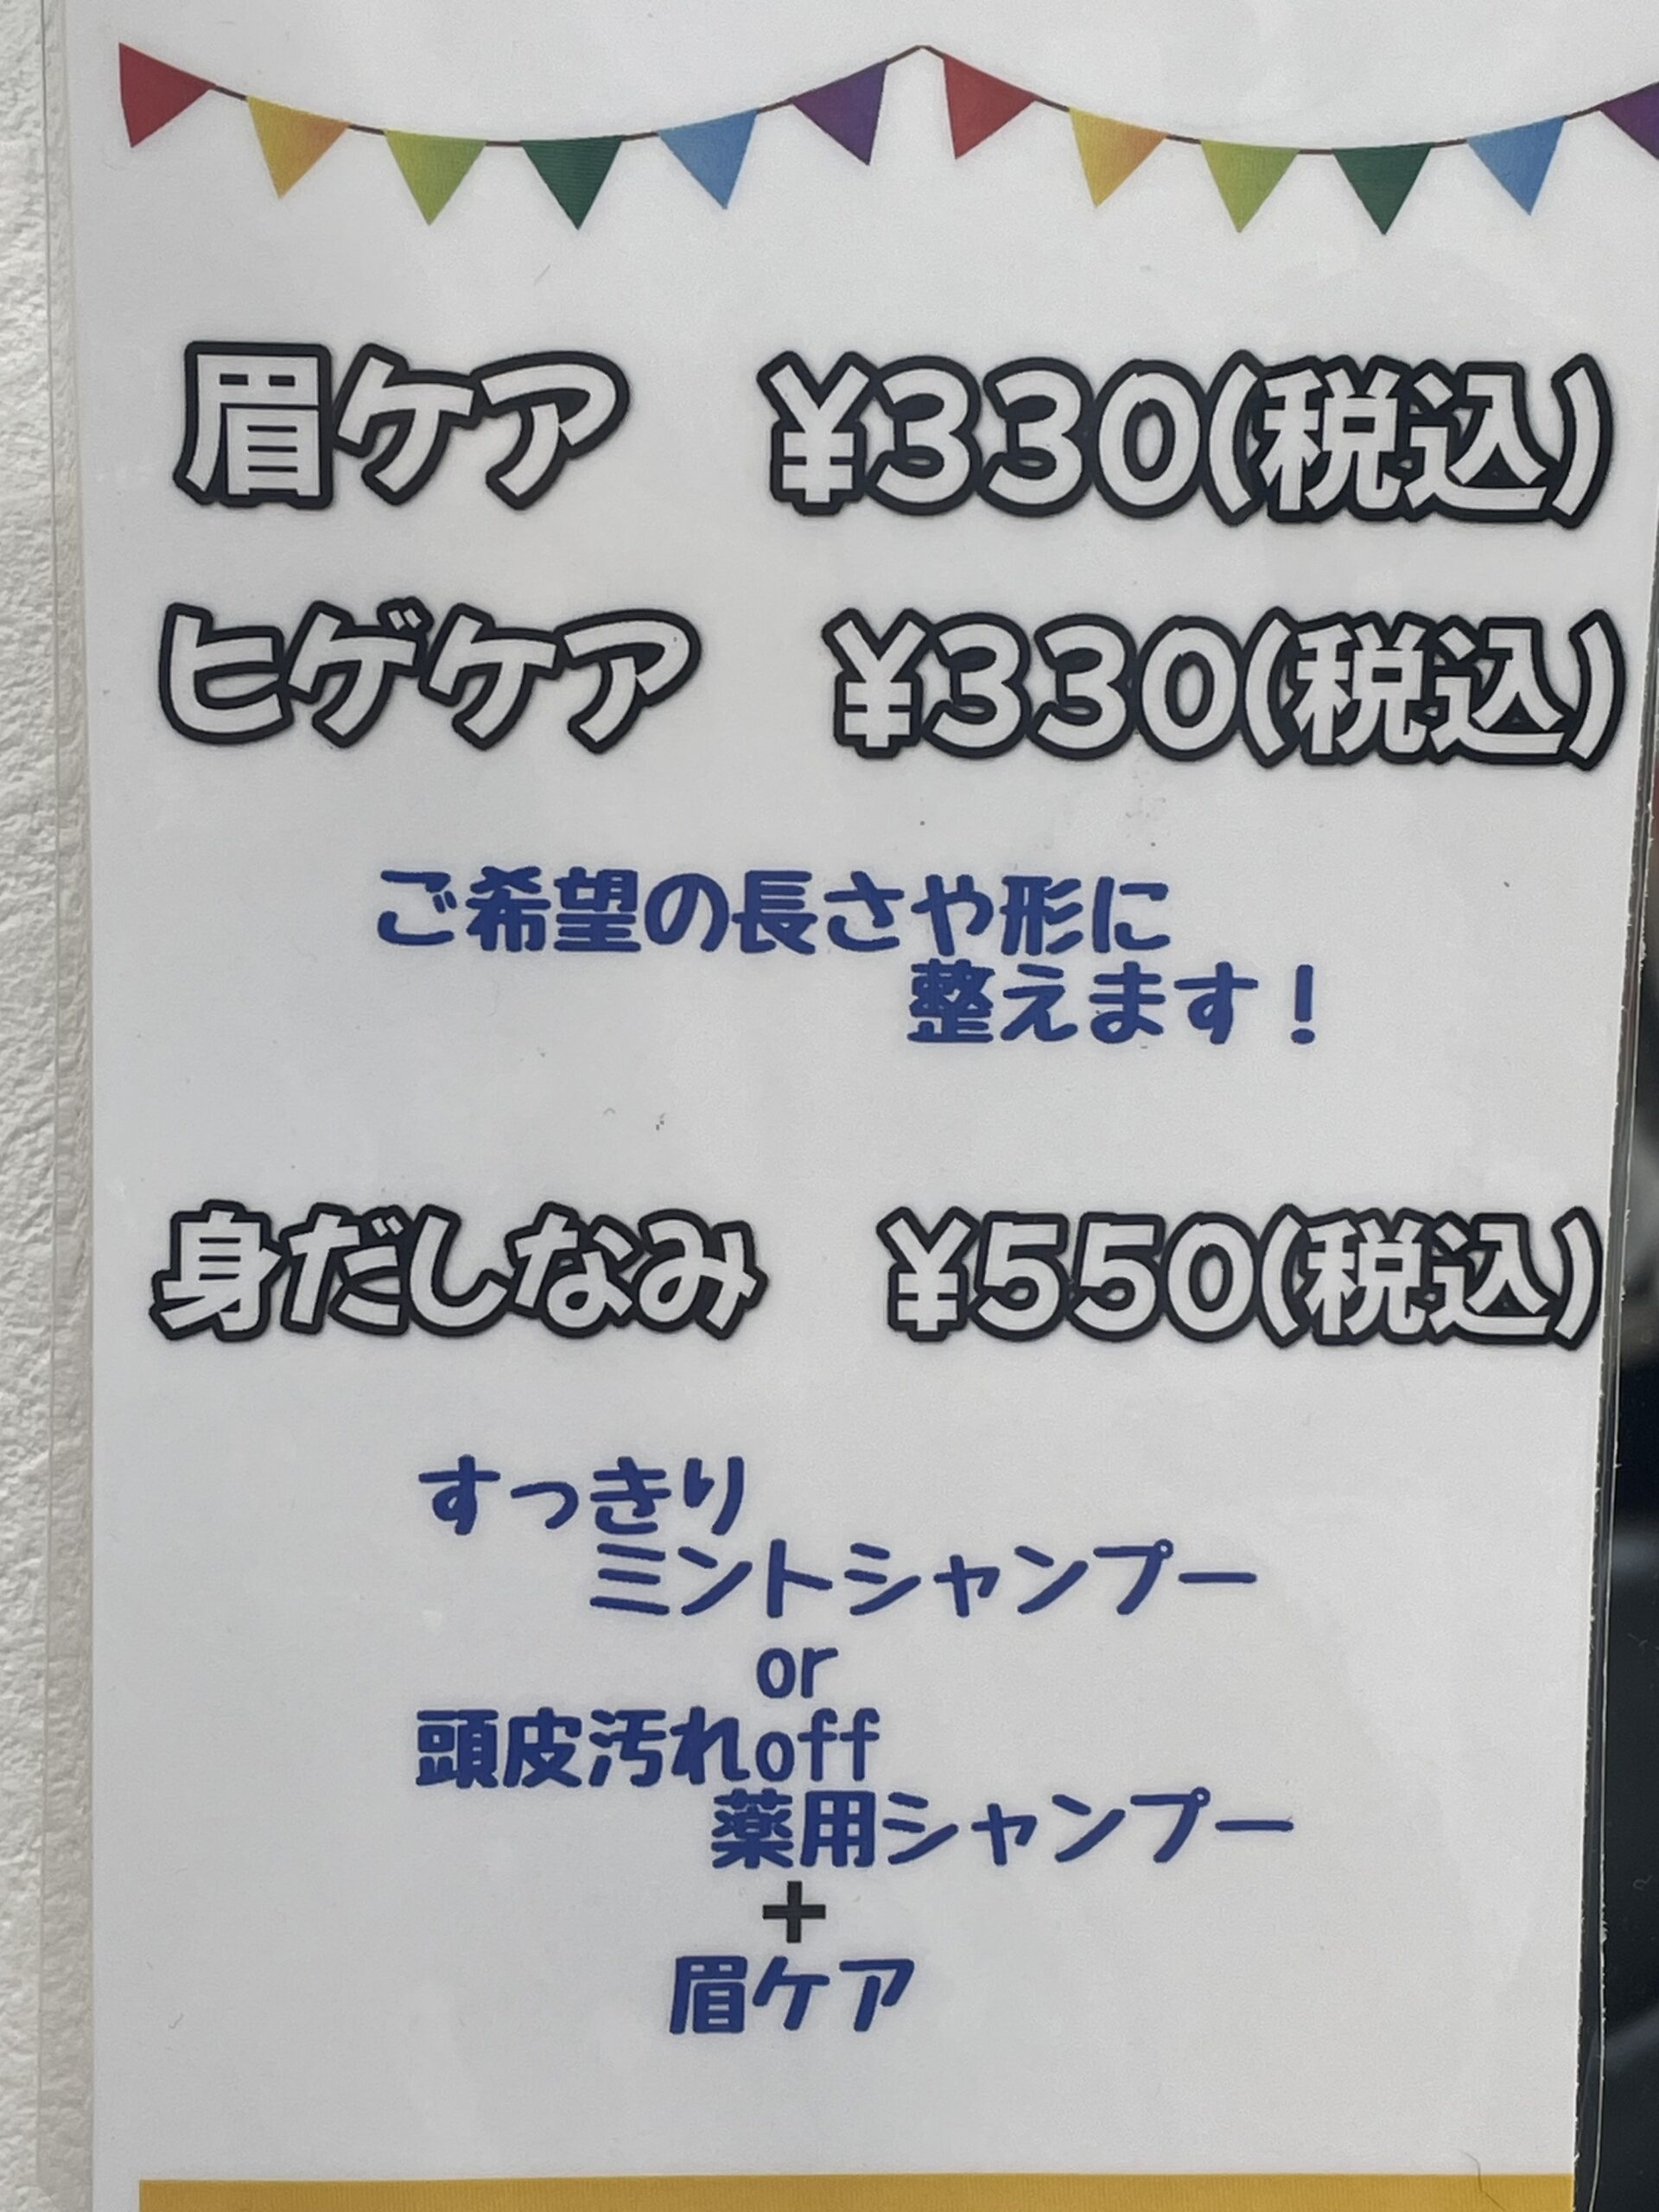 眉ケア ¥330(税込)
ヒゲケア ¥330(税込)
ご希望の長さや形に
整えます！
身だしなみ ¥550(税込)
すっきり
ミントシャンプー
or
頭皮汚れoff
薬用シャンプー
+
眉ケア